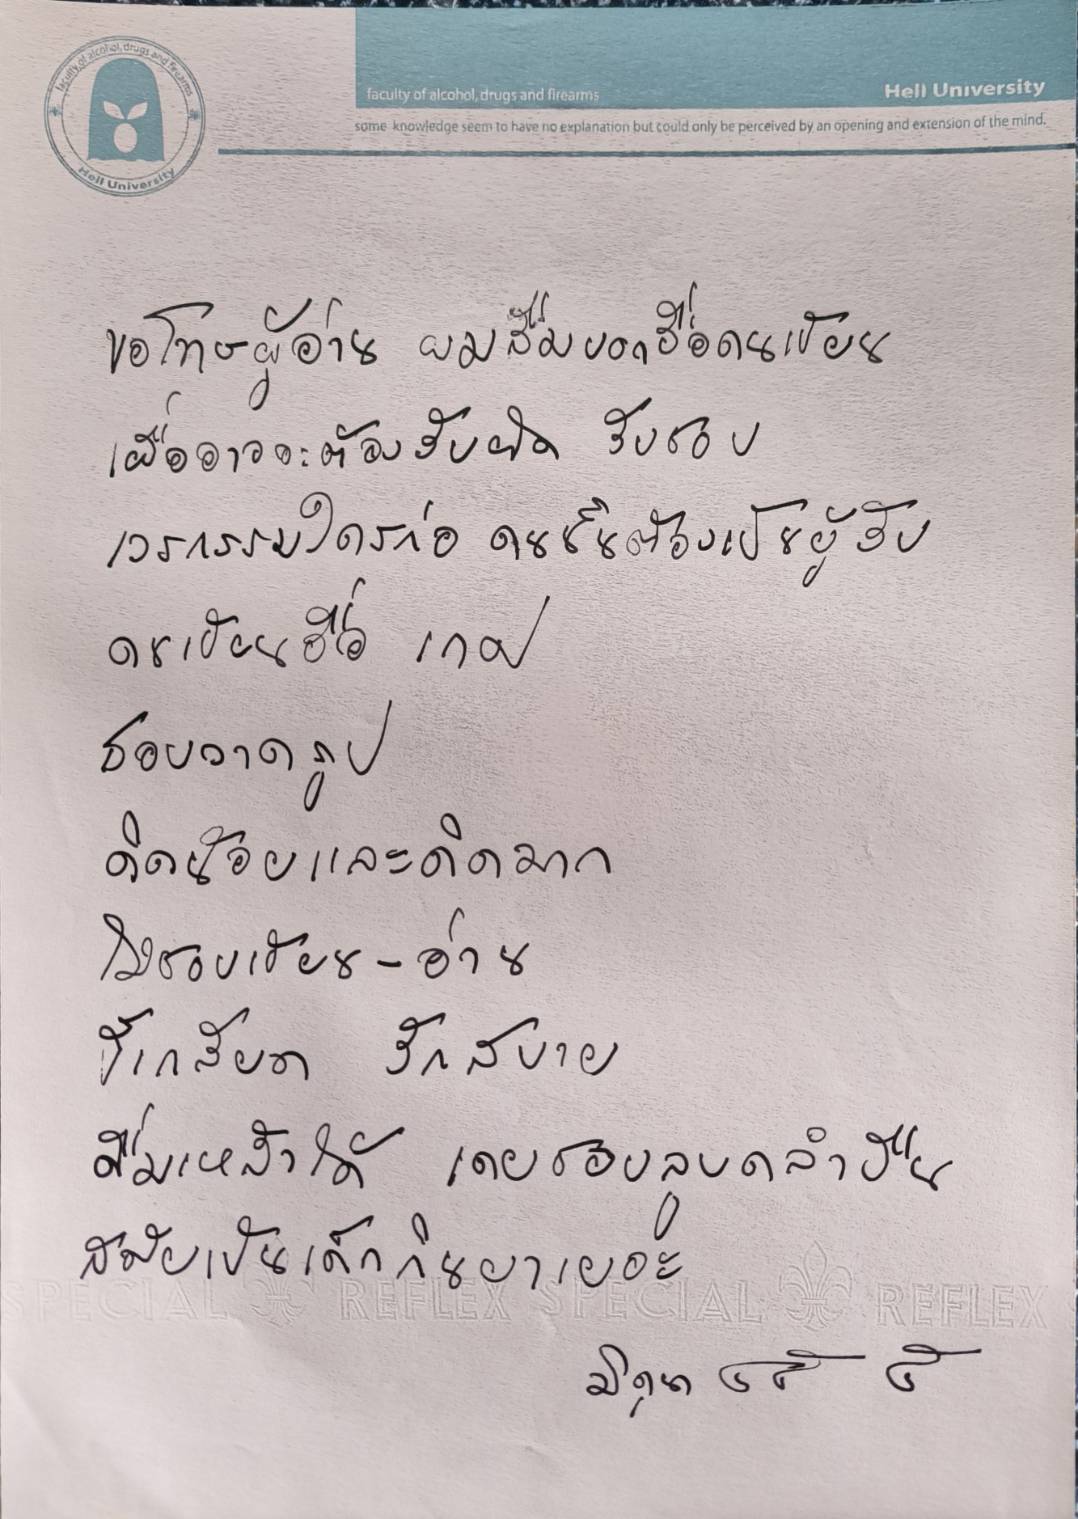 faculty of alcohol, drugs and firearms
Hell University
faculty of alcohol, drugs and firearms
Hell University
some knowledge seem to have no explanation but could only be perceived by an opening and extension of the mind.
ขอโทษผู้อ่าน ผมลืมบอกชื่อคนเขียน
เผื่ออาจจะต้องรับผิด รับชอบ
เวรกรรมใครก่อ คนนั้นต้องเป็นผู้รับ
คนเขียนชื่อ เกฟ
ชอบวาดรูป
คิดน้อยและคิดมาก
ไม่ชอบเขียน - อ่าน
ขี้เกลียด รักสบาย
ดื่มเหล้าได้ เคยชอบลูบคลำปืน
สมัยเป็นเด็กกินยาเยอะ
SPECIAL REFLEX SPECIAL REFLEX
มิถุนา ๔๕